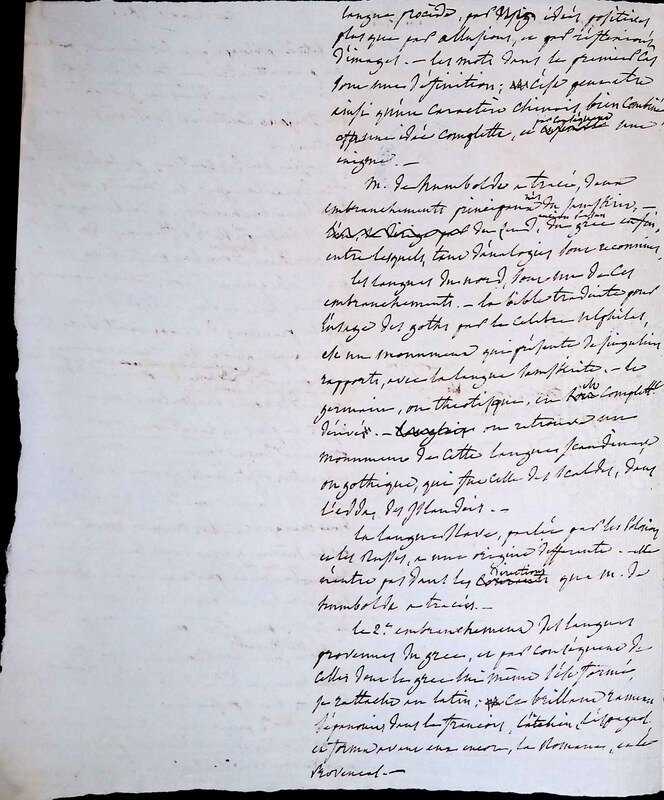 langue procède, par idées positives
plus que par allusions, ou par réflexions
d'images. — les mots dans le premier cas
sont une définition; c'est peut etre
ainsi qu'un caractère chinois bien combiné
offre une idée complette, et par conséquent une
enigme. —
m. de humbolde a tracé, deux
embranchements principaux nés du sanskrit, —
du zend, du grec enfin,
entre lesquels, tant d'analogies sont reconnues,
les langues du nord, sont une de ces
embranchements. — la bible traduite pour
l'usage des goths par le celebre ulphilas,
est un monument qui présente de singuliers
rapports, avec la langue sanskrite. — le
germain, ou theotisque, en complett.
dérivé. — on retrouve un
monument de cette langue scandinave
ou gothique, qui fut celle des scaldes, dans
l'edda, des Islandois. —
la langue slave, parlée par les Polonois
et les Russes, a une origine differente. — elle
n'entre pas dans les directions que m. de
humbolde a tracées. —
le 2e. embranchement des langues
provenues du grec, et par conséquent de
celles dont le grec lui même s'est formé,
se rattache au latin; ce brillant rameau
s'épanouit dans le francois, l'italien, l'espagnol,
et forma avant eux encore, la Romane, et le
Provencal. —